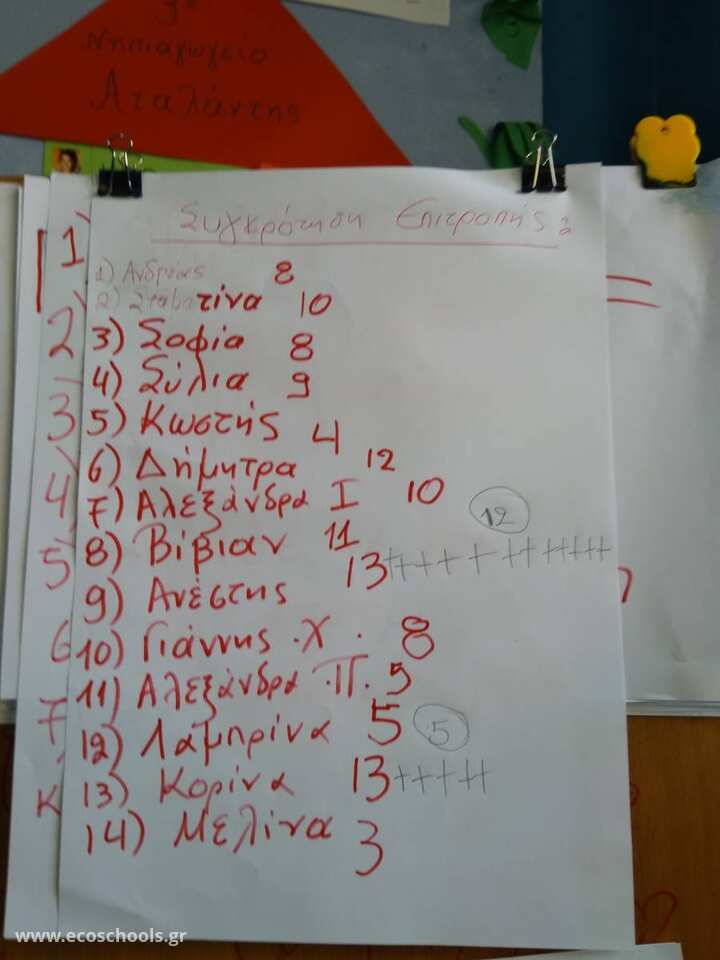 3ο
Νηπιαγωγείο
Αταλάντης
Συγκρότηση Επιτροπής:
1) Ανδρέας 8
2) Σταματίνα 10
3) Σοφία 8
4) Σύλια 9
5) Κωστής 4
6) Δήμητρα 12
7) Αλεξάνδρα Ι 10
8) Βίβιαν 11
12
9) Ανέστης 13 ++++ + ++ +++++
10) Γιάννης .Χ. 8
11) Αλεξάνδρα .Π. 5
12) Λαμπρίνα 5
5
13) Κορίνα 13 +++++
14) Μελίνα 3
1)
2)
3)
4)
5)
6
7
κ
www.ecoschools.gr